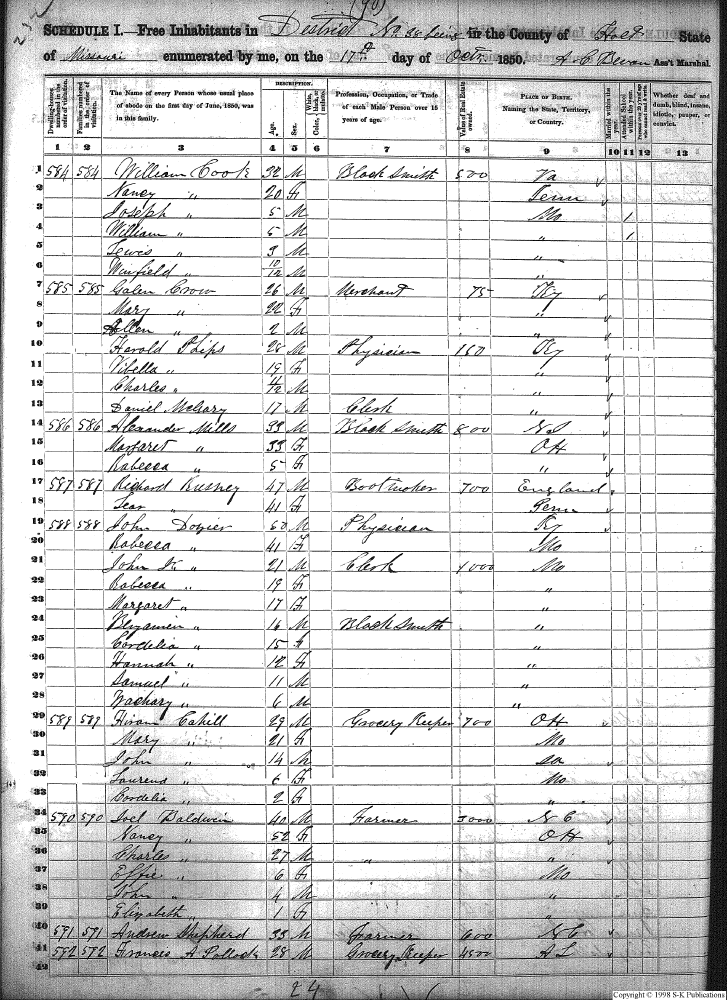 (90)
SCHEDULE I.—Free Inhabitants in District No 38 being in the County of Holt State
of Missouri enumerated by me, on the 17th day of Octr 1850. A C Bevan Ass't Marshal.
Dwelling-houses numbered in the order of visitation.
Families numbered in the order of visitation.
The Name of every Person whose usual place of abode on the first day of June, 1850, was in this family.
DESCRIPTION.
Age.
Sex.
Color, White, black, or mulatto.
Profession, Occupation, or Trade of each Male Person over 15 years of age.
Value of Real Estate owned.
PLACE OF BIRTH. Naming the State, Territory, or Country.
Married within the year.
Attended School within the year.
Persons over 20 y'rs of age who cannot read & write.
Whether deaf and dumb, blind, insane, idiotic, pauper, or convict.
1 2 3 4 5 6 7 8 9 10 11 12 13
1 584 584 William Cook 32 M Black Smith 500 Va
2 Nancy " 20 F Tenn
3 Joseph " 5 M Mo 1
4 William " 5 M " 1
5 Lewis " 3 M "
6 Winfield " 10/12 M "
7 585 585 Galen Crow 26 M Merchant 75 Ky
8 Mary " 22 F "
9 Allen " 2 M "
10 Harold Phips 28 M Physician 150 Ky
11 Vibella " 19 F "
12 Charles " 4/12 M "
13 Daniel McCrary 17 M Clerk "
14 586 586 Alexander Mills 33 M Black Smith 800 N.J
15 Margaret " 33 F OH
16 Rabecca " 5 F "
17 587 587 Richard Kusney 47 M Bootmaker 700 England
18 Lear " 41 F Penn
19 588 588 John Dozier 50 M Physician Ky
20 Rabecca " 41 F Mo
21 John Jr " 21 M Clerk 1000 Mo
22 Rabecca " 19 F "
23 Margaret " 17 F "
24 Benjamin " 16 M Black Smith "
25 Cordelia " 15 F "
26 Hannah " 12 F "
27 Samuel " 11 M "
28 Wachary " 6 M "
29 589 589 Hiram Cahill 29 M Grocery Keeper 700 OH
30 Mary " 21 F Mo
31 John " 14 M do
32 Laurena " 6 F Mo
33 Cordelia " 2 F "
34 590 590 Joel Baldwin 40 M Farmer 3000 N C
35 Nancy " 52 F OH
36 Charles " 27 M " "
37 Effie " 6 F Mo
38 John " 4 M "
39 Elizabeth " 1 F "
40 591 591 Andrew Shipherd 33 M Farmer 600 N C
41 592 592 Frances A Pollock 28 M Grocery Keeper 4500 A L
42
24
Copyright © 1998 S-K Publications